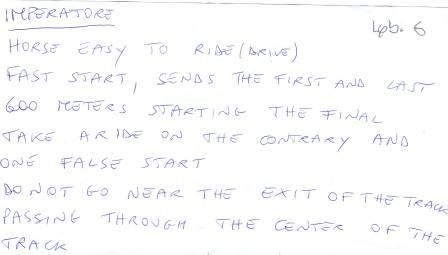 IMPERATORE
Lpb. 6
HORSE EASY TO RIDE (DRIVE)
FAST START, SENDS THE FIRST AND LAST
600 METERS STARTING THE FINAL
TAKE A RIDE ON THE CONTRARY AND
ONE FALSE START
DO NOT GO NEAR THE EXIT OF THE TRACK
PASSING THROUGH THE CENTER OF THE
TRACK